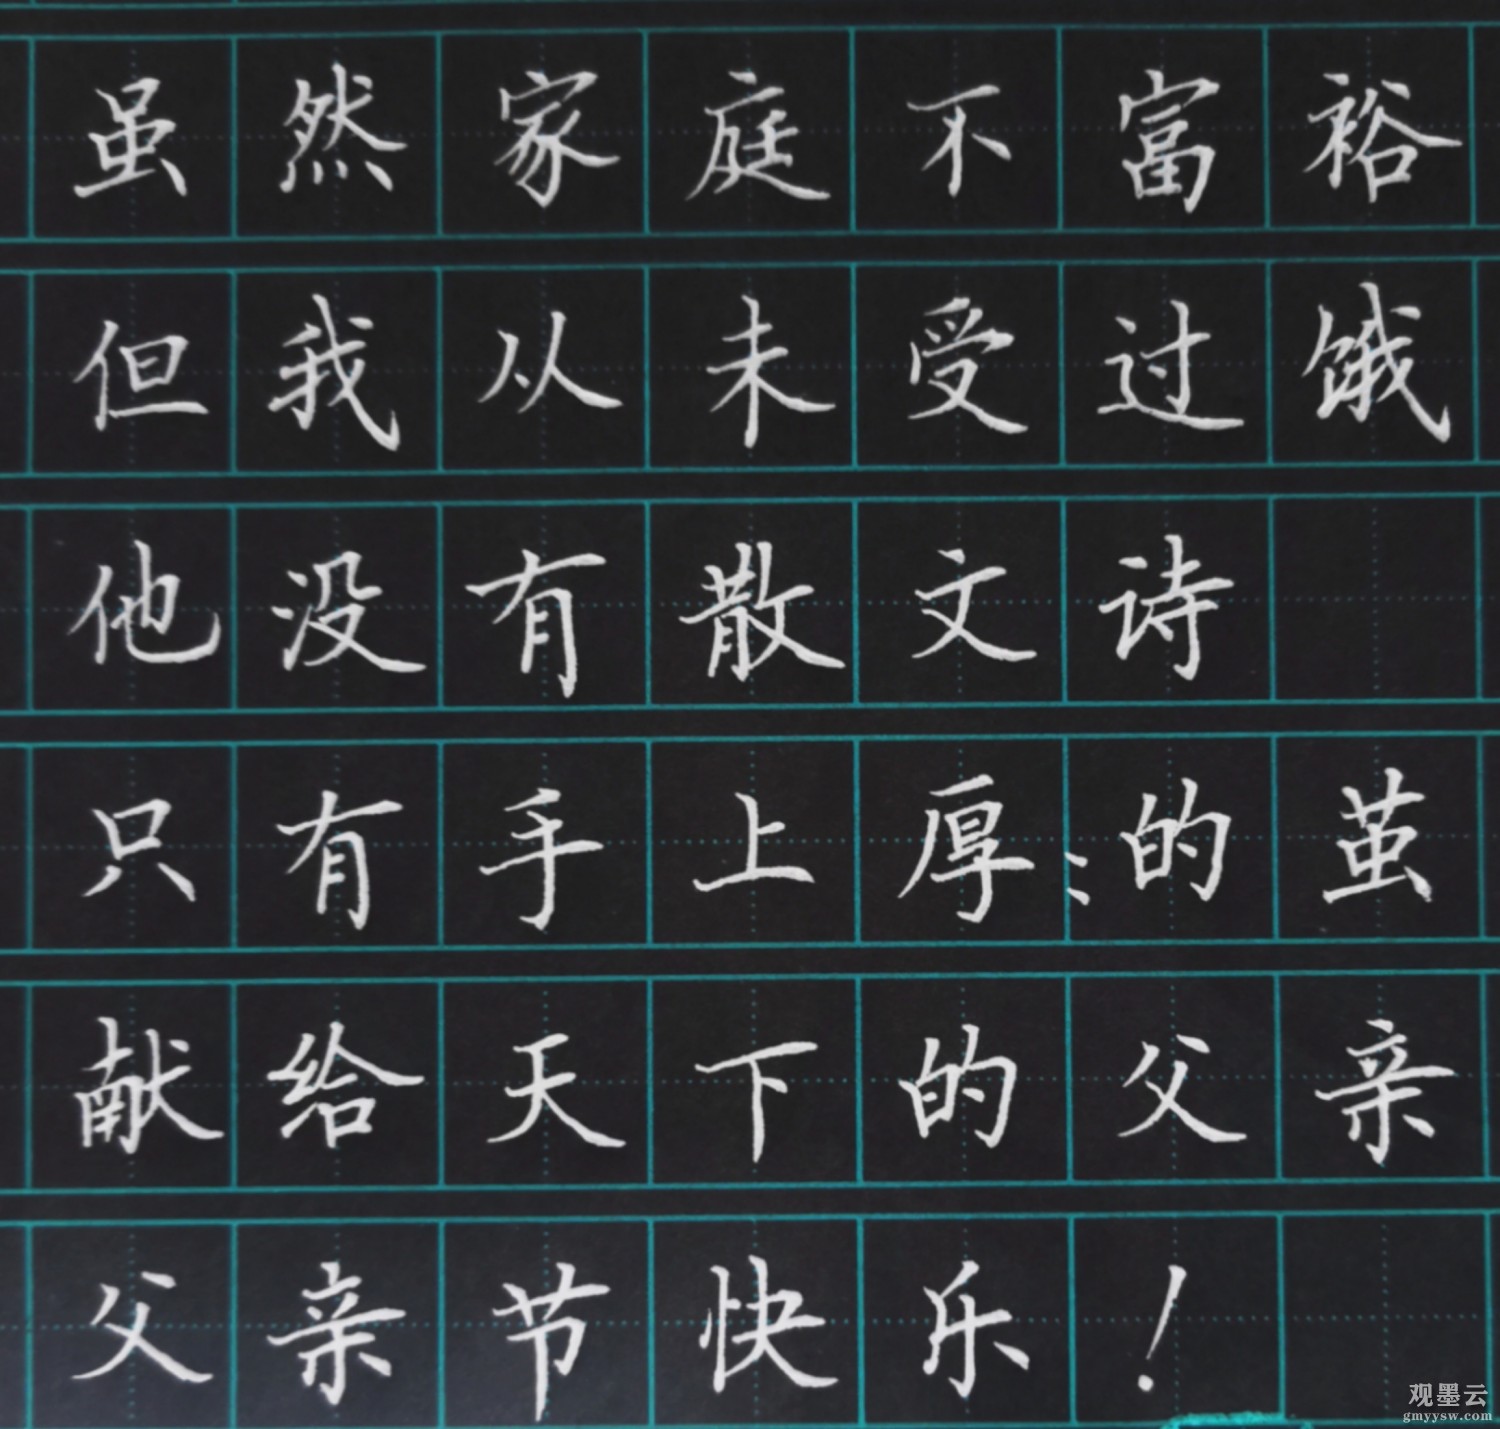 虽然家庭不富裕
但我从未受过饿
他没有散文诗
只有手上厚:的茧
献给天下的父亲
父亲节快乐!
观墨云
gmyysw.com